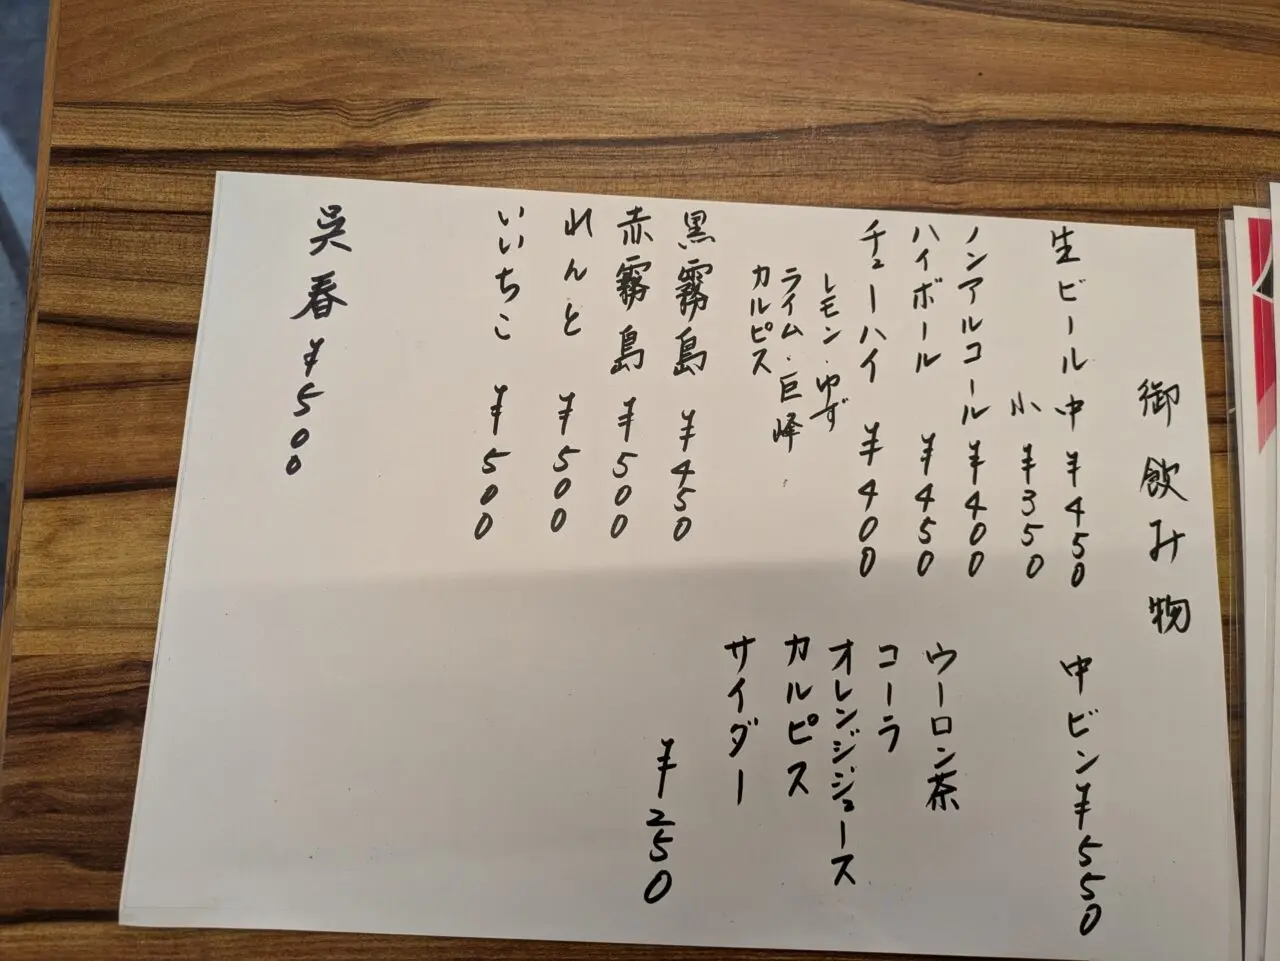 御飲み物
生ビール中 ¥450
小 ¥350
ノンアルコール ¥400
ハイボール ¥450
チューハイ ¥400
レモン・ゆず
ライム・巨峰
カルピス
黒霧島 ¥450
赤霧島 ¥500
れんと ¥500
いいちこ ¥500
呉春 ¥500
中ビン ¥550
ウーロン茶
コーラ
オレンジジュース
カルピス
サイダー
¥250